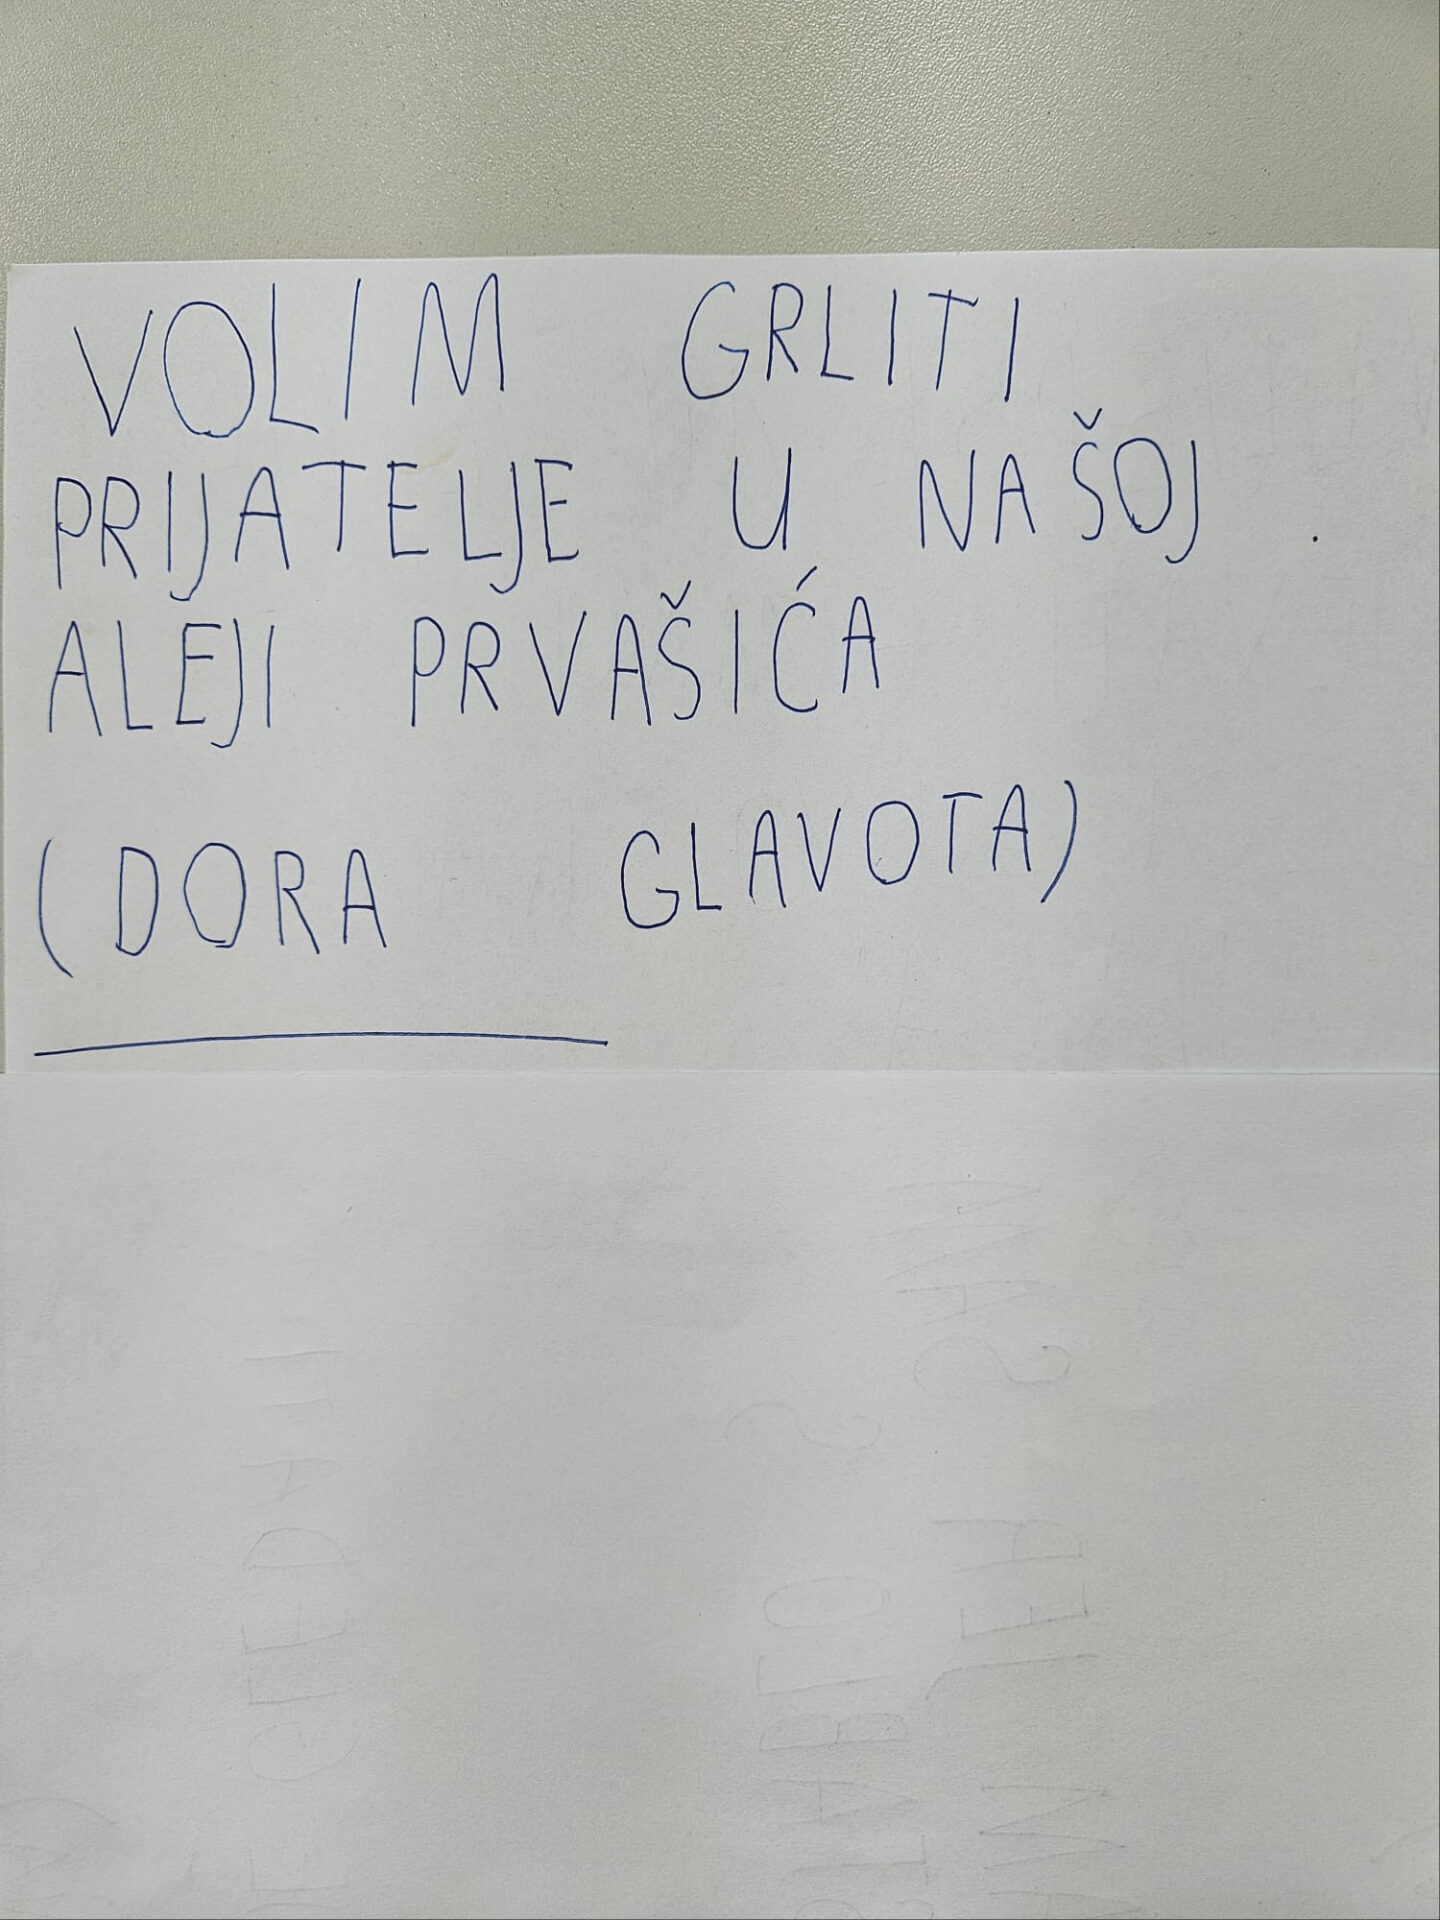 VOLIM GRLITI
PRIJATELJE U NAŠOJ
ALEJI PRVAŠIĆA
(DORA GLAVOTA)